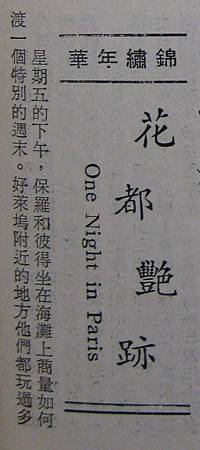 錦繡年華
花都艷跡
One Night in Paris
星期五的下午，保羅和彼得坐在海灘上商量如何
渡一個特別的週末。好萊塢附近的地方他們都玩過多